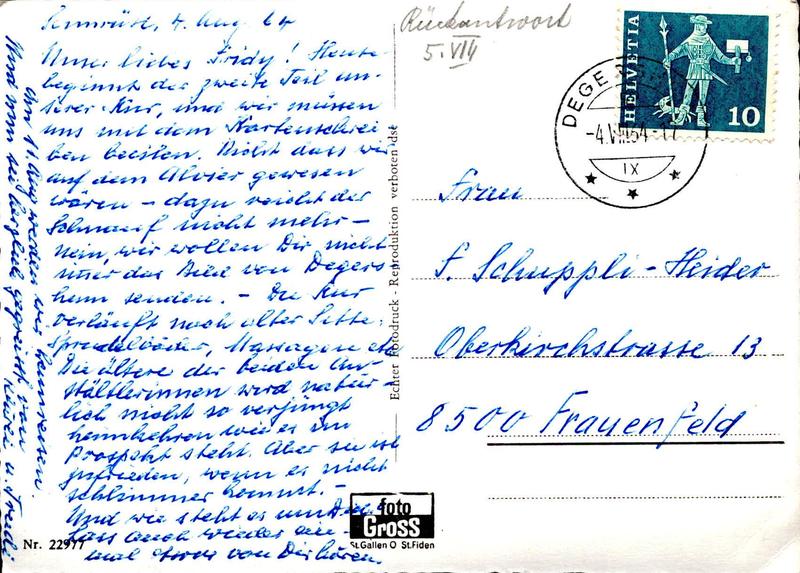 Sennrüti, 4. Aug. 64
Unser liebes Fridy! Heute
beginnt der zweite Teil un-
serer Kur, und wir müssen
uns mit dem Kartenschrei-
ben beeilen. Nicht dass wir
auf dem Alvier gewesen
wären – dazu reicht der
Schnauf nicht mehr –
Nein, wir wollen Dir nicht
nur das Bild von Degers-
heim senden. – Die Kur
verläuft nach alter Sitte:
Sprudelbäder, Massagen etc.
Die ältere der beiden An-
stältlerinnen wird natür-
lich nicht so verjüngt
heimkehren wie es im
Prospekt steht. Aber sie ist
zufrieden, wenn es nicht
schlimmer kommt. –
Und wie steht es um Dich?
Lass auch wieder ein-
mal etwas von Dir hören.
Am 11. Aug. werden wir heimreisen.
Und nun sei herzlich gegrüsst von
u.
Rückantwort
5. VIII
HELVETIA
10
DEGE
-4.VIII.64-17
IX
Frau
F. Schuppli-Heider
Oberkirchstrasse 13
8500 Frauenfeld
Echter Fotodruck - Reproduktion verboten
foto
Gross
St.Gallen O St.Fiden
Nr. 22977